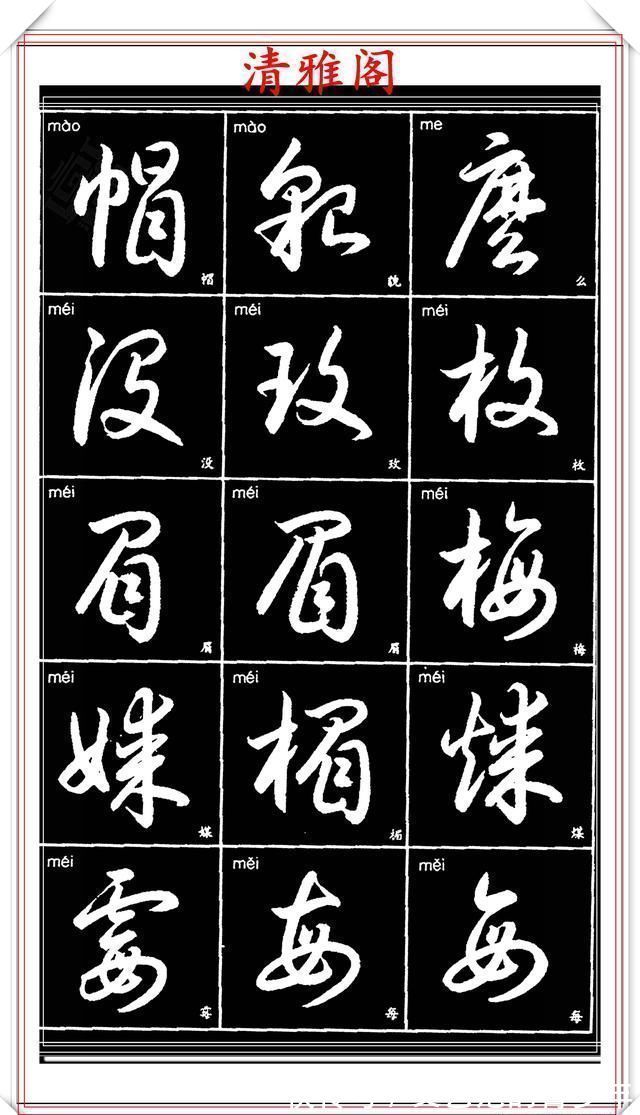 清雅阁
mào mào me
帽 貌 麽
帽 貌 么
méi méi méi
没 玫 枚
没 玫 枚
méi méi méi
眉 眉 梅
眉 眉 梅
méi méi méi
媒 楣 煤
媒 楣 煤
méi měi měi
霉 每 每
每 每